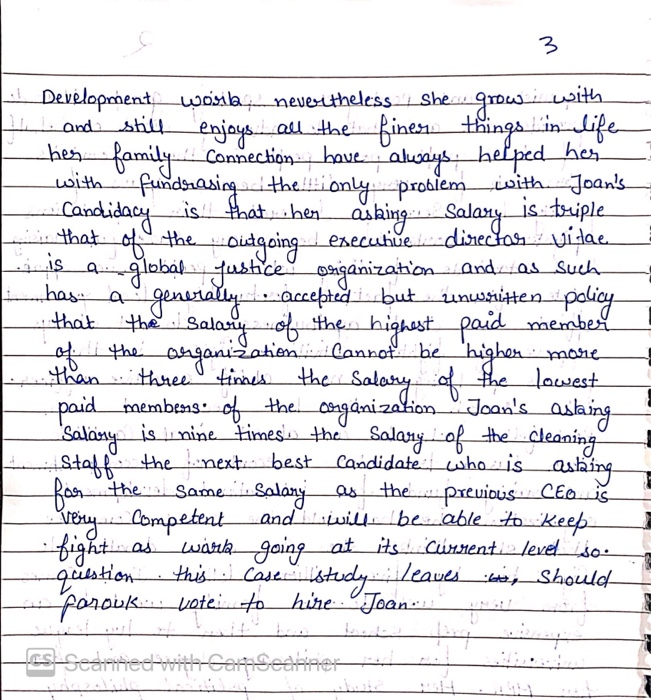 3
Development work, nevertheless she grow with
and still enjoys all the finer things in life
her family connection have always helped her
with fundrasing the only problem with Joan's
Candidacy is that her asking Salary is triple
that of the outgoing executive director vitae
is a global justice organization and as such
has a generally accepted but unwritten policy
that the salary of the highest paid member
of the organization Cannot be higher more
than three times the Salary of the lowest
paid members of the organization Joan's asking
Salary is nine times the Salary of the cleaning
Staff the next best Candidate who is asking
for the same Salary as the previous CEO is
very Competent and will be able to keep
fight as work going at its current level so
question this Case study leaves , Should
Farouk vote to hire Joan.
CS Scanned with CamScanner